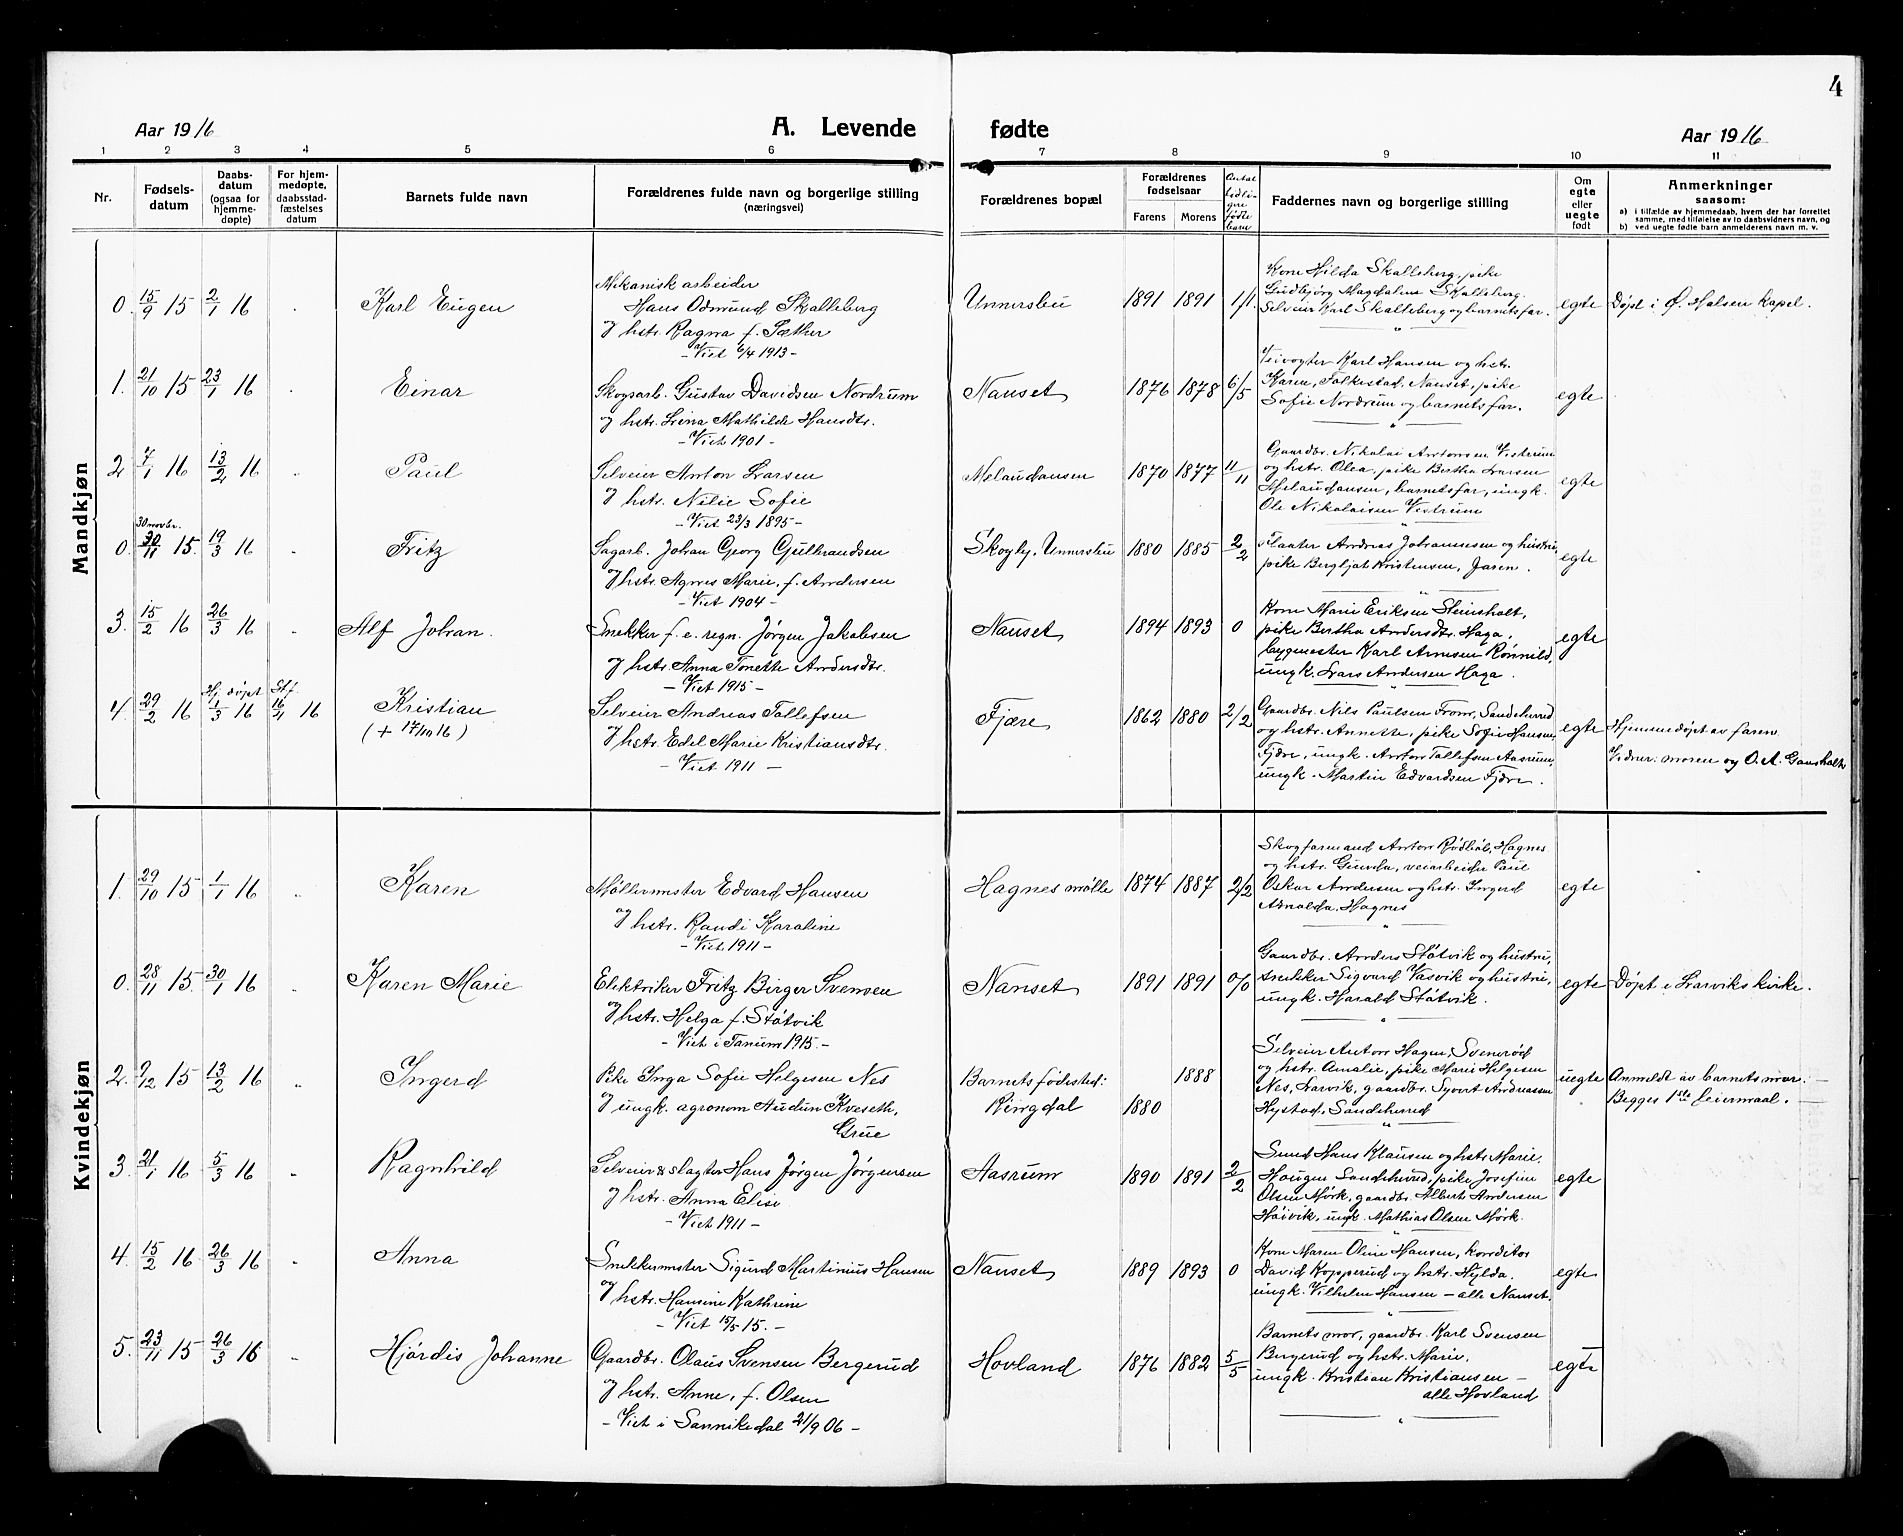 4
Aar 1916
A. Levende fødte
Aar 1916
1 2 3 4 5 6 7 8 9 10 11
Nr.
Fødsels-
datum
Daabs-
datum
(ogsaa for
hjemme-
døpte)
For hjem-
medøpte,
daabsstad-
fæstelses
datum
Barnets fulde navn
Forældrenes fulde navn og borgerlige stilling
(næringsvei)
Forældrenes bopæl
Forældrenes
fødselsaar
Farens Morens
Antal
tidli-
gere
fødte
barn
Faddernes navn og borgerlige stilling
Om
egte
eller
uegte
født
Anmerkninger
saasom:
a) i tilfælde av hjemmedaab, hvem der har forrettet
samme, med tilføielse av to daabsvidners navn, og
b) ved uegte fødte barn anmelderens navn m. v.
Mandkjøn
0. 15/9 15 2/1 16 Karl Eugen
Mekanisk arbeider
Hans Odmund Skalleberg
og hstr. Ragna f. Sæther
- Viet 6/4 1913 -
Unnersbu 1891 1891 1/1
Kone Hilda Skalleberg, pike
Gudbjørg Magdalene Skalleberg.
Selveier Karl Skalleberg og barnets far.
egte Døpt i Ø. Halsen kapel.
1. 21/10 15 23/1 16 Einar
Skogsarb. Gustav Davidsen Nordrum
og hstr. Lina Mathilde Hansdtr.
- Viet 1901 -
Nanset 1876 1878 6/5
Veivogter Karl Hansen og hstr.
Karen, Falkestad, Nanset, pike
Sofie Nordrum og barnets far.
egte
2 7/1 16 13/2 16 Paul
Selveier Anton Larsen
og hstr. Nelie Sofie
- Viet 23/3 1895 -
Melaudansen 1870 1877 11/11
Gaardbr. Nikolai Antonsen Vestrum
og hstr. Olea, pike Bertha Larsen
Melaudansen, barnets far, ungk.
Ole Nikolaisen Vestrum
egte
30 novbr.
0. 30/11 15. 19/3 16 Fritz
Sagarb. Johan Georg Gulbrandsen
og hstr. Agnes Marie, f. Andersen
- Viet 1904 -
Skogly, Unnersbu 1880 1885 2/2
Andreas Johannesen og hustru,
pike Bergljot Kristensen, Jaren.
egte
3. 15/2 16 26/3 16 Alf Johan.
Snekker f. e. regn. Jørgen Jakobsen
og hstr. Anna Tonette Andersdtr.
- Viet 1915 -
Nanset 1894 1893 0
Kone Marie Eriksen Steinsholt,
pike Bertha Andersdtr. Haga,
bygmester Karl Arnesen Rønnild,
ungk. Lars Andersen Haga.
egte
4. 29/2 16 Hj. døpt 1/3 16 Stf. 16/4 16 Kristian
(+ 17/10 16)
Selveier Andreas Tollefsen
og hstr. Edel Marie Kristiansdtr.
- Viet 1911 -
Fjære 1862 1880 2/2
Gaardbr. Nils Paulsen From, Sandeherred
og hstr. Annette, pike Sofie Hansen,
Fjære, ungk. Anton Tollefsen Aasrum,
ungk. Martin Edvardsen Fjære.
egte Hjemmedøpt av faren.
Vidner: moren og O. A. Gausholt
Kvindekjøn
1. 29/10 15 1/1 16 Karen
Møllermester Edvard Hansen
og hstr. Randi Karoline
- Viet 1911 -
Hagnes mølle 1874 1887 2/2
Skogformand Anton Rødbøl, Hagnes
og hstr. Gunda, veiarbeider Paul
Oskar Andersen og hstr. Ingerd
Arnolda, Hagnes
egte
0. 28/11 15. 30/1 16 Karen Marie
Elektriker Fritz Birger Svensen
og hstr. Helga f. Støtvik
- Viet i Tanum 1915. -
Nanset 1891 1891 0/0
Gaardbr. Anders Støtvik og hustru,
snekker Sigvard Vasvik og hustru,
ungk. Harald Støtvik.
egte Døpt i Larviks kirke.
2. 9/12 15 13/2 16 Ingerd
Pike Inga Sofie Helgesen Nes
og ungk. agronom Audun Kveseth,
Grue
Barnets fødested:
Ringdal
1888
1880
Selveier Anton Hagen, Svensrød
og hstr. Amalie, pike Marie Helgesen
Nes, Larvik, gaardbr. Syvert Andreassen
Hystad, Sandeherred
uegte Anmeldt av barnets mor. -
Begges 1ste leiermaal. -
3. 21/1 16 5/3 16 Ragnhild
Selveier & slagter Hans Jørgen Jørgensen
og hstr. Anna Elise
- Viet 1911 -
Aasrum 1890 1891 2/2
Smed Hans Klausen og hstr. Marie,
Haugen Sandeherred, pike Josefine
Olsen Mørk, gaardbr. Albert Andersen
Høivik, ungk. Mathias Olsen Mørk.
egte
4. 15/2 16 26/3 16 Anna
Snekkermester Sigurd Martinius Hansen
og hstr. Hansine Kathrine
- Viet 15/5 15. -
Nanset 1889 1893 0
Kone Maren Oline Hansen, konditor
David Kopperud og hstr. Hylda.
ungk. Vilhelm Hansen - alle Nanset.
egte
5. 23/11 15 26/3 16 Hjørdis Johanne
Gaardbr. Olaus Svensen Bergerud
og hstr. Anne, f. Olsen
- Viet i Sannikedal 21/9 06 -
Hovland 1876 1882 5/5
Barnets mor, gaardbr. Karl Svensen
Bergerud og hstr. Marie.
ungk. Kristian Kristiansen -
alle Hovland
egte